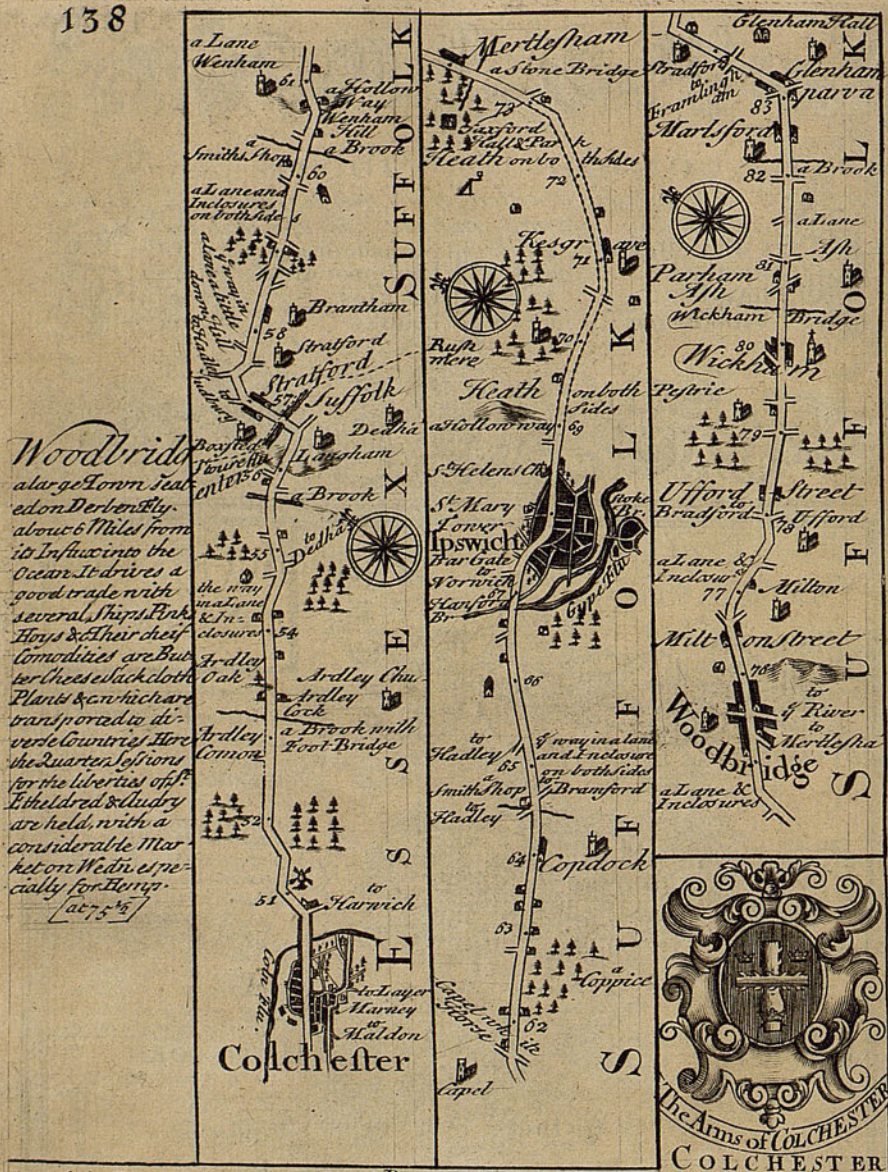 138
Woodbridg
a large Town Seat
ed on Derben Flu.
about 6 Miles from
its Influx into the
Ocean. It drives a
good trade with
several Ships Pinks
Hoys &c Their cheif
Comodities are But
ter Cheese Sackcloth
Plants &c. which are
transported to di-
verse Countries Here
the Quarter Sessions
for the liberties of St.
Etheldred & Audry
are held, with a
considerable Mar
ket on Wedn. espe-
cially for Hemp.
a Lane
Wenham
61
a Hollow
Way
Wenham
Hill
a Brook
a
Smiths Shop
60
a Lane and
Inclosures
on both sides
58
Brantham
Stratford
Stratford
57
Suffolk
to Sudbury
Boxsted
Dedha
Stoure flu
Langham
enter
56
a Brook
to
Dedha
55
the way
in a Lane
& In-
closures
54
Ardley
Oak
Ardley Chu
Ardley
Cock
a Brook with
Foot Bridge
Ardley
Comon
52
51
to
Harwich
Coln Flu.
to Layer
Marney
to
Maldon
Colchester
SUFFOLK
ESSEX
Mertlesham
a Stone Bridge
73
Hall & Park
Heath on both sides
72
Kesgrave
71
Rush
mere
70
Heath on both
Sides
a Hollow way
69
St Helens Ch
St Mary
Tower
Stoke
Br.
Ipswich
Bar Gate
to
Norwich
67
Hanford
Br
Gype Flu
66
to
Hadley
ye way in a lane
and Inclosure
on both sides
65
a
Smith Shop
to
Bramford
to
Hadley
64
Copdock
63
a
Coppice
62
Capel
SUFFOLK
Glenham Hall
Stradford
to
Framlingh
am
Glenham
parva
83
Marlsford
a Brook
82
a Lane
Ash
81
Parham
Ash
Wickham Bridge
80
Wickham
Pestrie
79
Ufford Street
to
Bradford
Ufford
78
a Lane &
Inclosurs
77
Milton
Milton Street
76
to
ye River
to
Mertlesha
Woodbridge
a Lane &
Inclosures
SUFFOLK
The Arms of COLCHESTER
COLCHESTER